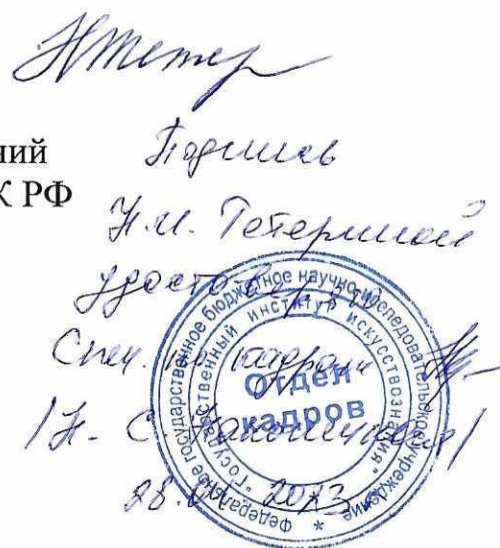 ний
К РФ
Подпись
Н.И. Тетериной
удостоверяю
Спец. по кадрам
28. 2023
Федеральное государственное бюджетное научно-исследовательское учреждение *
"Государственный институт искусствознания"
Отдел
кадров